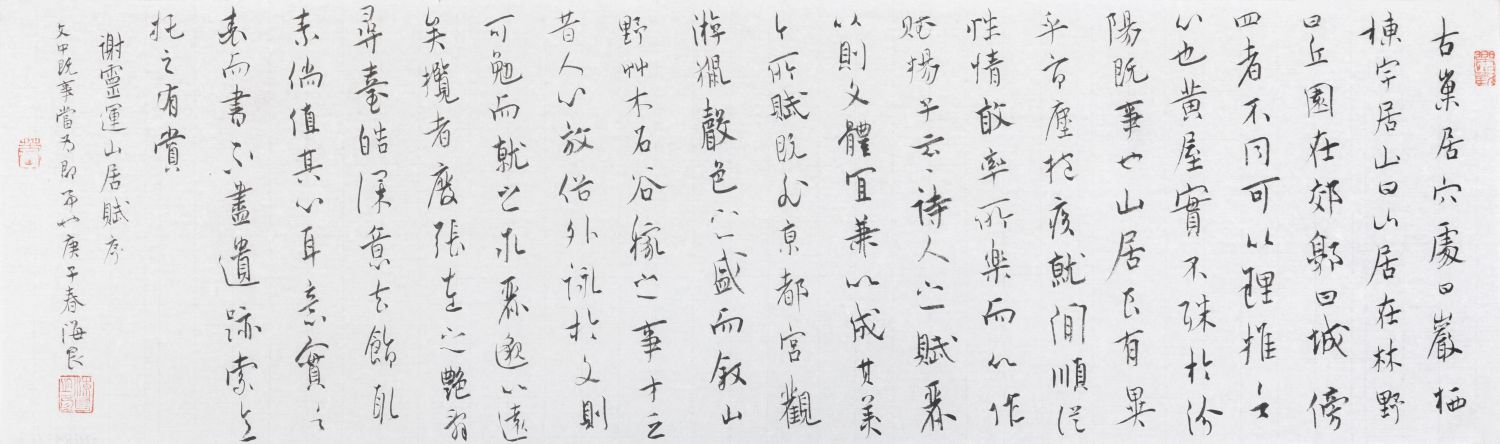 古巢居穴處曰巖栖
棟宇居山曰山居在林野
曰丘園在郊郭曰城傍
四者不同可以理推言
心也黃屋實不殊於汾
陽既事也山居良有異
乎市廛抱疾就閒順從
性情敢率所樂而以作
賦揚子云、詩人之賦麗
以則文體宜兼以成其美
今所賦既非京都宮觀
遊獵聲色之盛而敘山
野艸木石谷稼之事才乏
昔人心放俗外詠於文則
可勉而就之求麗邈以遠
矣攬者廢張左之艷辭
尋臺皓深意去飾取
素倘值其心耳意實言
表而書不盡遺跡索意
托之有賞
謝靈運山居賦序
文中既事當為即事 庚子春海良